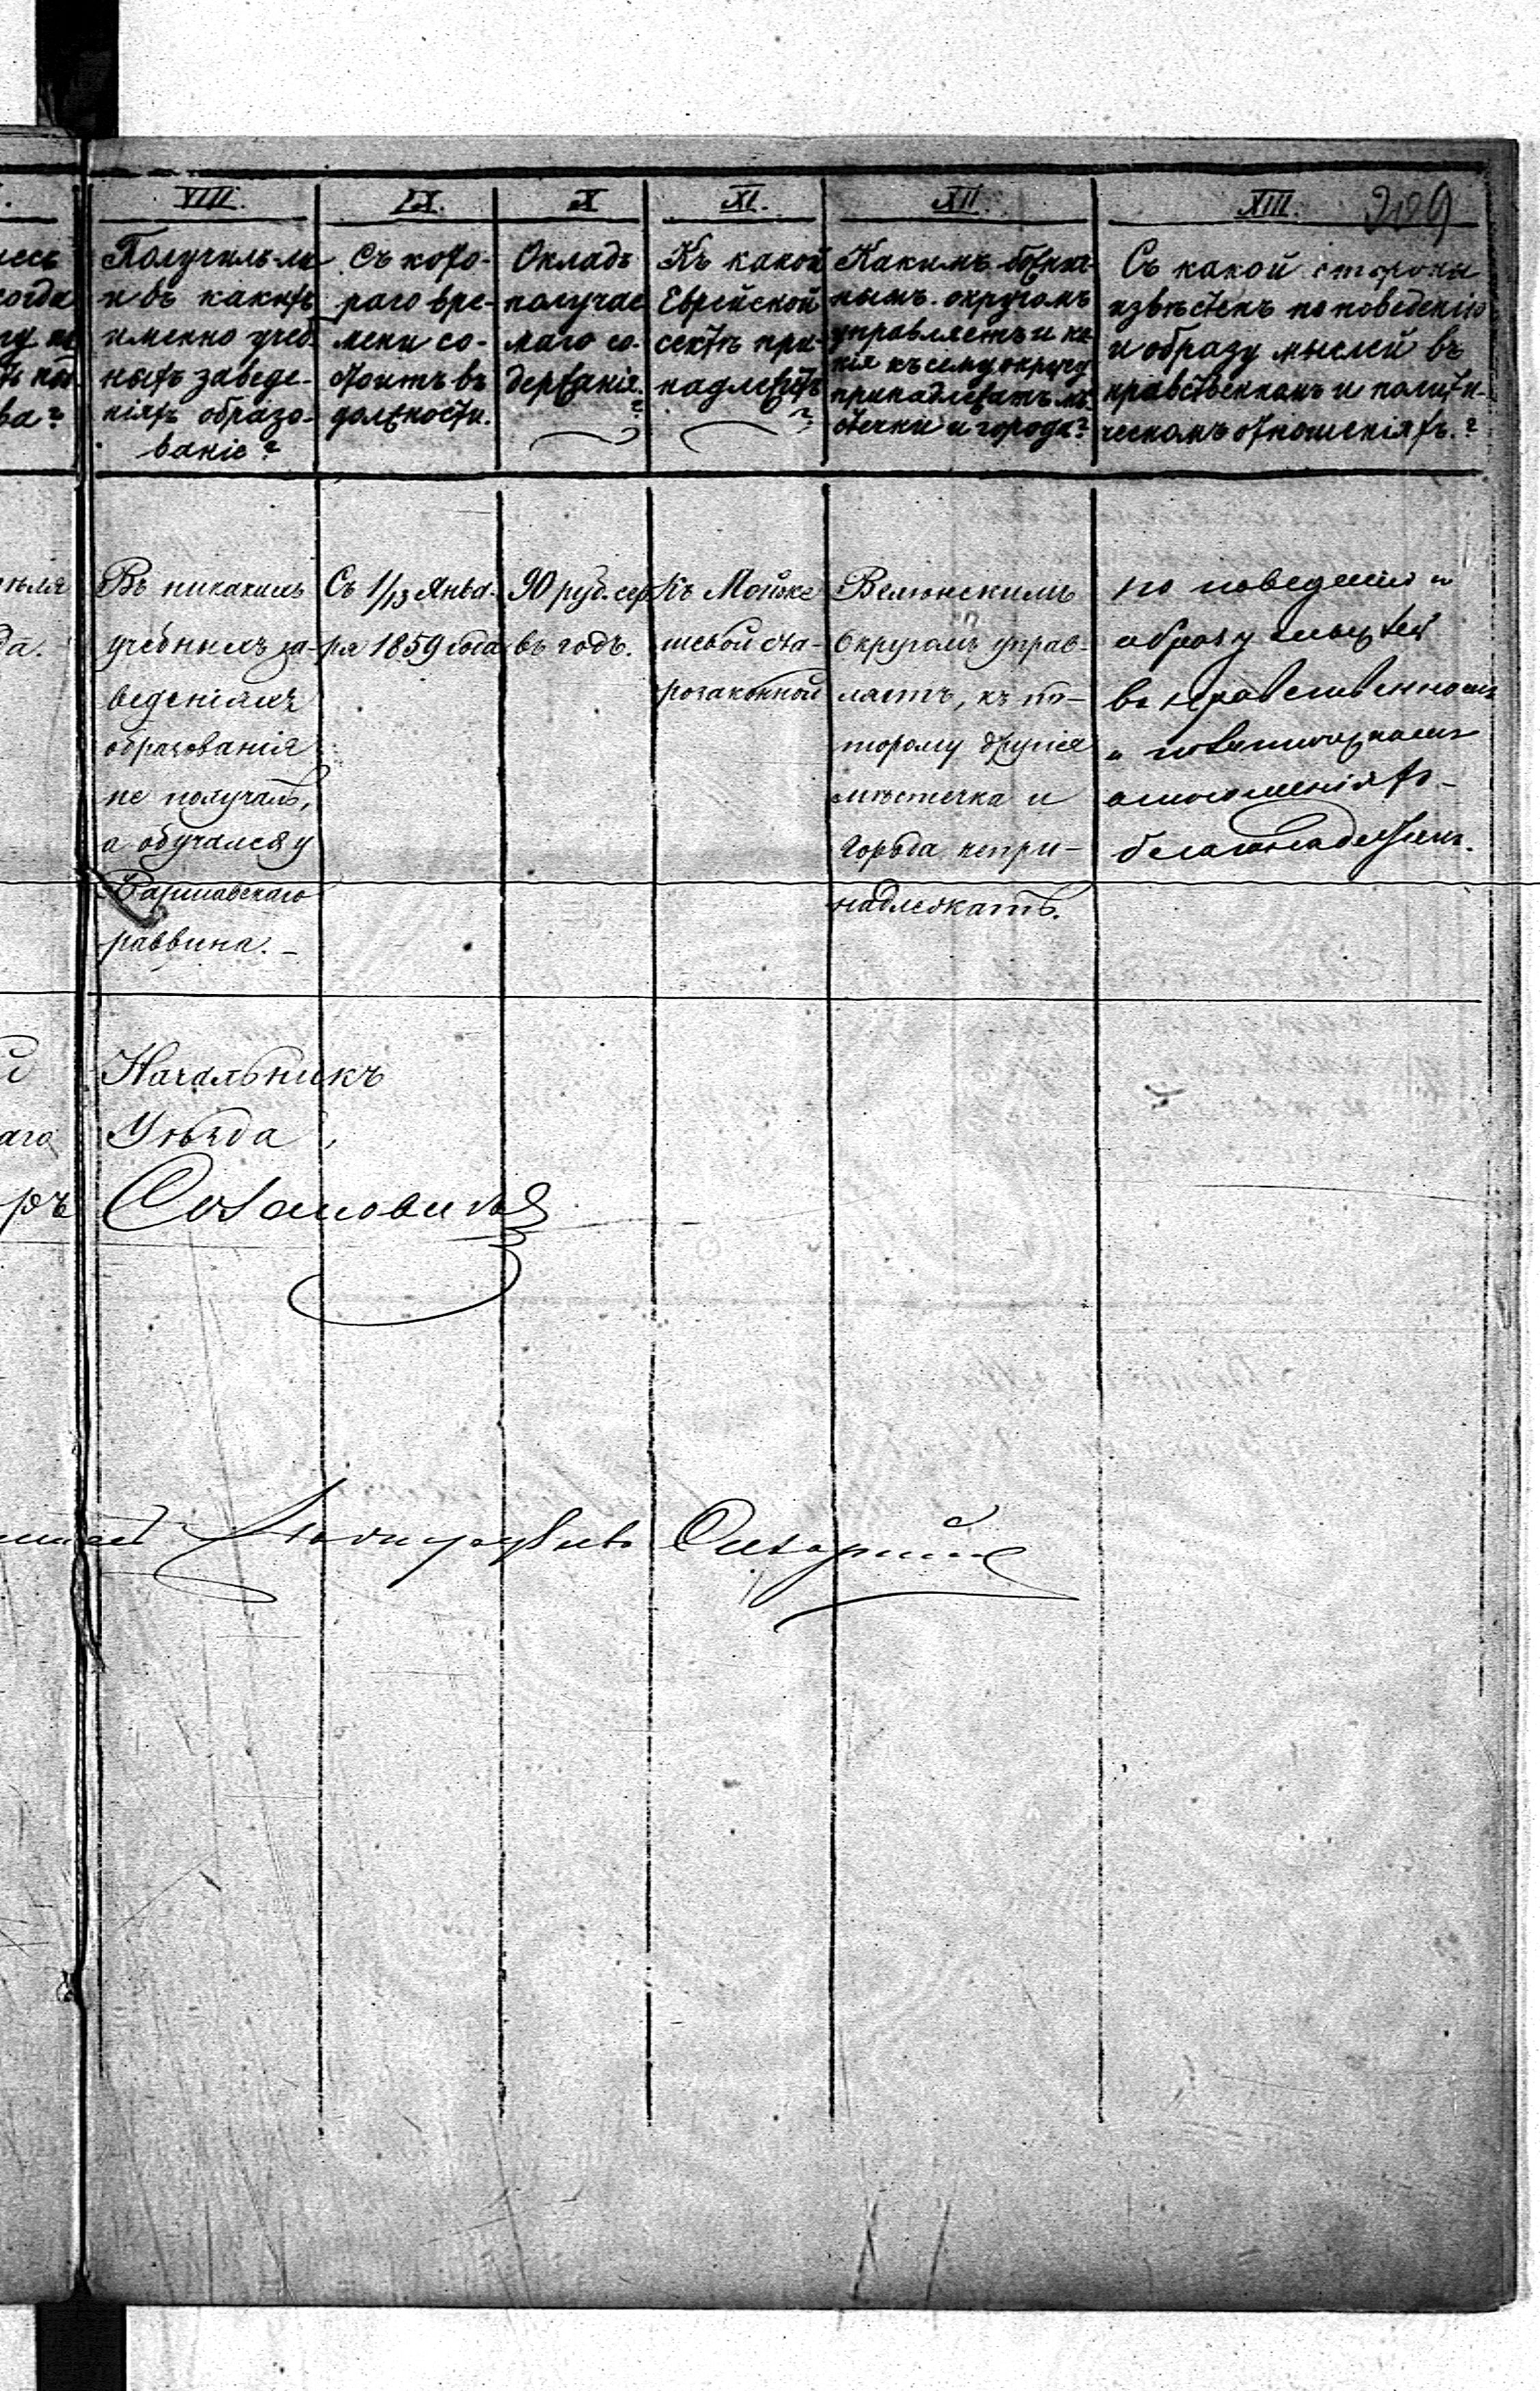 VIII.
Получилъ-ли
и въ какихъ
именно учеб-
ныхъ заведе-
ніяхъ образо-
ваніе?
IX.
Съ кото-
раго вре-
мени со-
стоитъ въ
должности.
X
Окладъ
получае
маго со-
держанія.
?
XI.
Къ какой
Еврейской
сектѣ при-
надлежитъ
?
XII.
Какимъ божнич-
нымъ округомъ
управляетъ и ка-
кія къ сему округу
принадлежатъ мѣ-
стечки и города?
XIII.
Съ какой стороны
извѣстенъ по поведенію
и образу мыслей въ
нравственномъ и полити-
ческомъ отношеніяхъ.?
Въ никакимъ
учебнымъ за-
веденіямъ
образованія
не получалъ,
а обучался у
Варшавскаго
раввина. -
Съ 1/13 Янва-
ря 1859 года
90 руб. сер.
въ годъ.
Къ Мойже
шевой ста-
розаконной
Велюнскимъ
Округомъ управ-
ляетъ, къ ко-
торому другіе
мѣстечка и
города непри-
надлежатъ.
по поведенію и
образу мыслей
въ нравственномъ
и политическомъ
отношеніяхъ -
благонадеженъ.
Начальникъ
Уѣзда,
аго
ръ